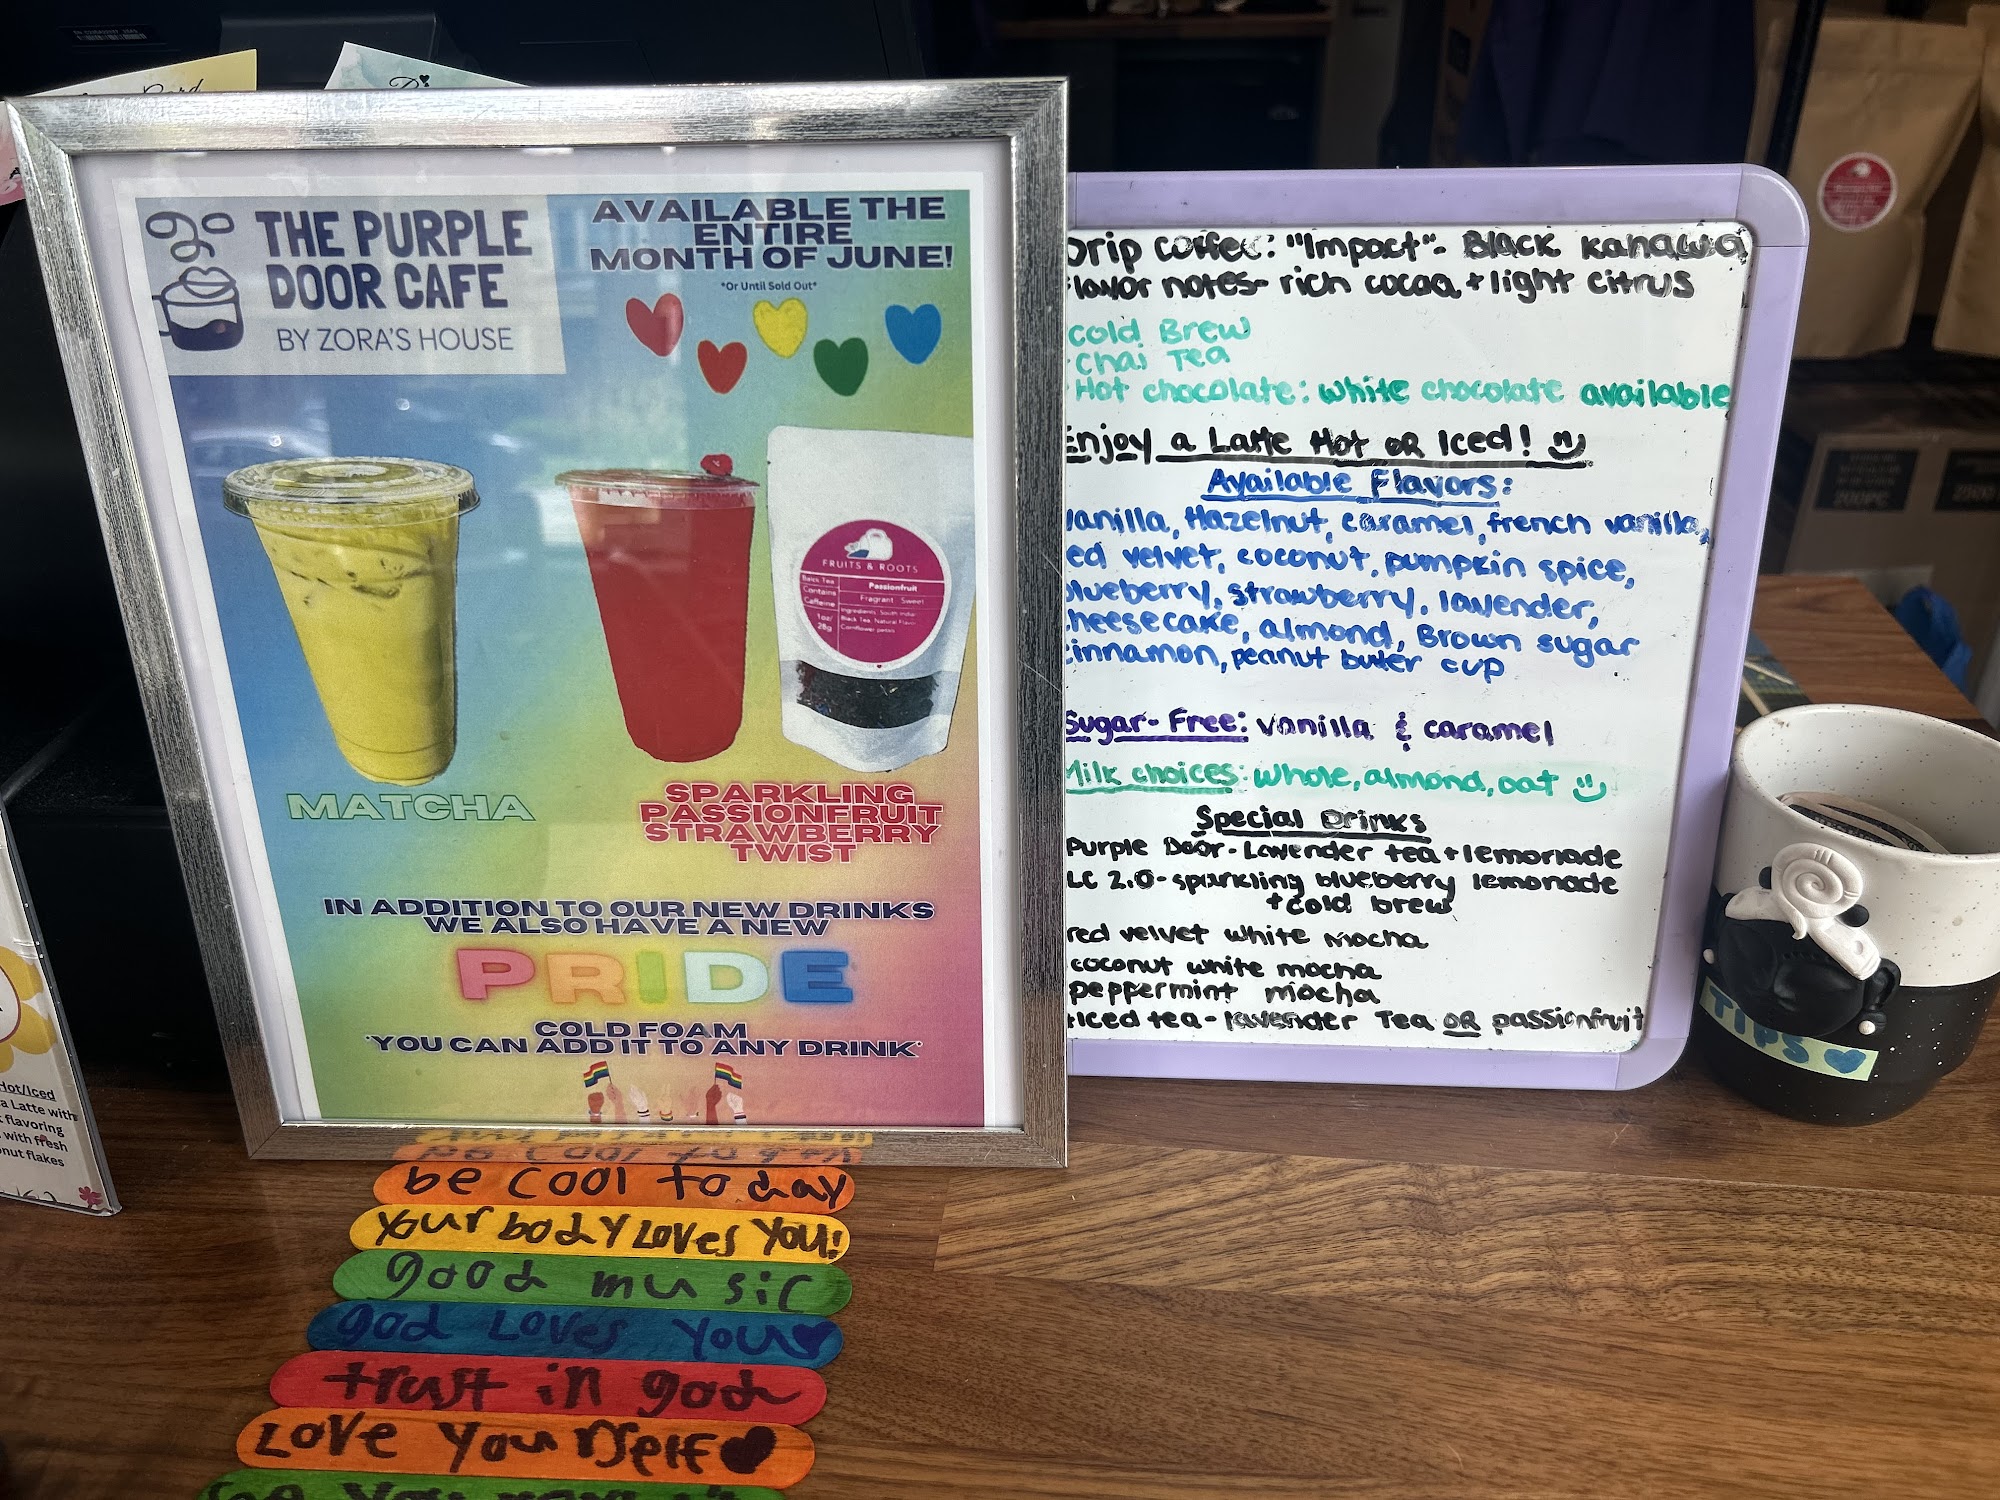 THE PURPLE
DOOR CAFE
BY ZORA'S HOUSE
AVAILABLE THE
ENTIRE
MONTH OF JUNE!
*Or Until Sold Out*
FRUITS & ROOTS
Passionfruit
Fragrant Sweet
Contains
Caffeine
1oz/
28g
MATCHA
SPARKLING
PASSIONFRUIT
STRAWBERRY
TWIST
IN ADDITION TO OUR NEW DRINKS
WE ALSO HAVE A NEW
PRIDE
COLD FOAM
*YOU CAN ADD IT TO ANY DRINK*
Drip coffee: "Impact"- Black Kanawa
flavor notes- rich cocoa + light citrus
cold Brew
Chai Tea
Hot chocolate: white chocolate available
Enjoy a Latte Hot OR Iced!
Available Flavors:
vanilla, Hazelnut, caramel, french vanilla,
red velvet, coconut, pumpkin spice,
blueberry, strawberry, lavender,
cheesecake, almond, Brown sugar
cinnamon, peanut butter cup
Sugar-Free: vanilla & caramel
Milk choices: whole, almond, oat
Special Drinks
Purple Door- Lavender tea + lemonade
LC 2.0- sparkling blueberry lemonade
+ cold brew
red velvet white mocha
coconut white mocha
peppermint mocha
Iced tea- lavender Tea OR passionfruit
TIPS
Hot/Iced
a Latte with
flavoring
with fresh
onut flakes
be cool today
your body Loves You!
good music
god Loves You
trust in god
Love Yourself